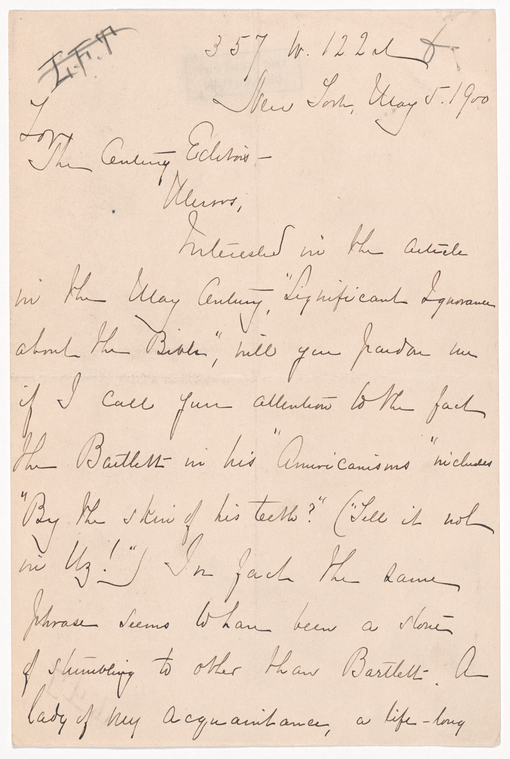 357 W. 122d
New York, May 5. 1900
For
The Century Editors —
Messrs,
Interested in the article
in the May Century, "Significant Ignorance
about the Bible", will you pardon me
if I call your attention to the fact
the Bartlett in his "Americanisms" includes
"By the skin of his teeth?" ("Tell it not
in Uz!") In fact the same
phrase seems to have been a stone
of stumbling to other than Bartlett. A
lady of my acquaintance, a life-long